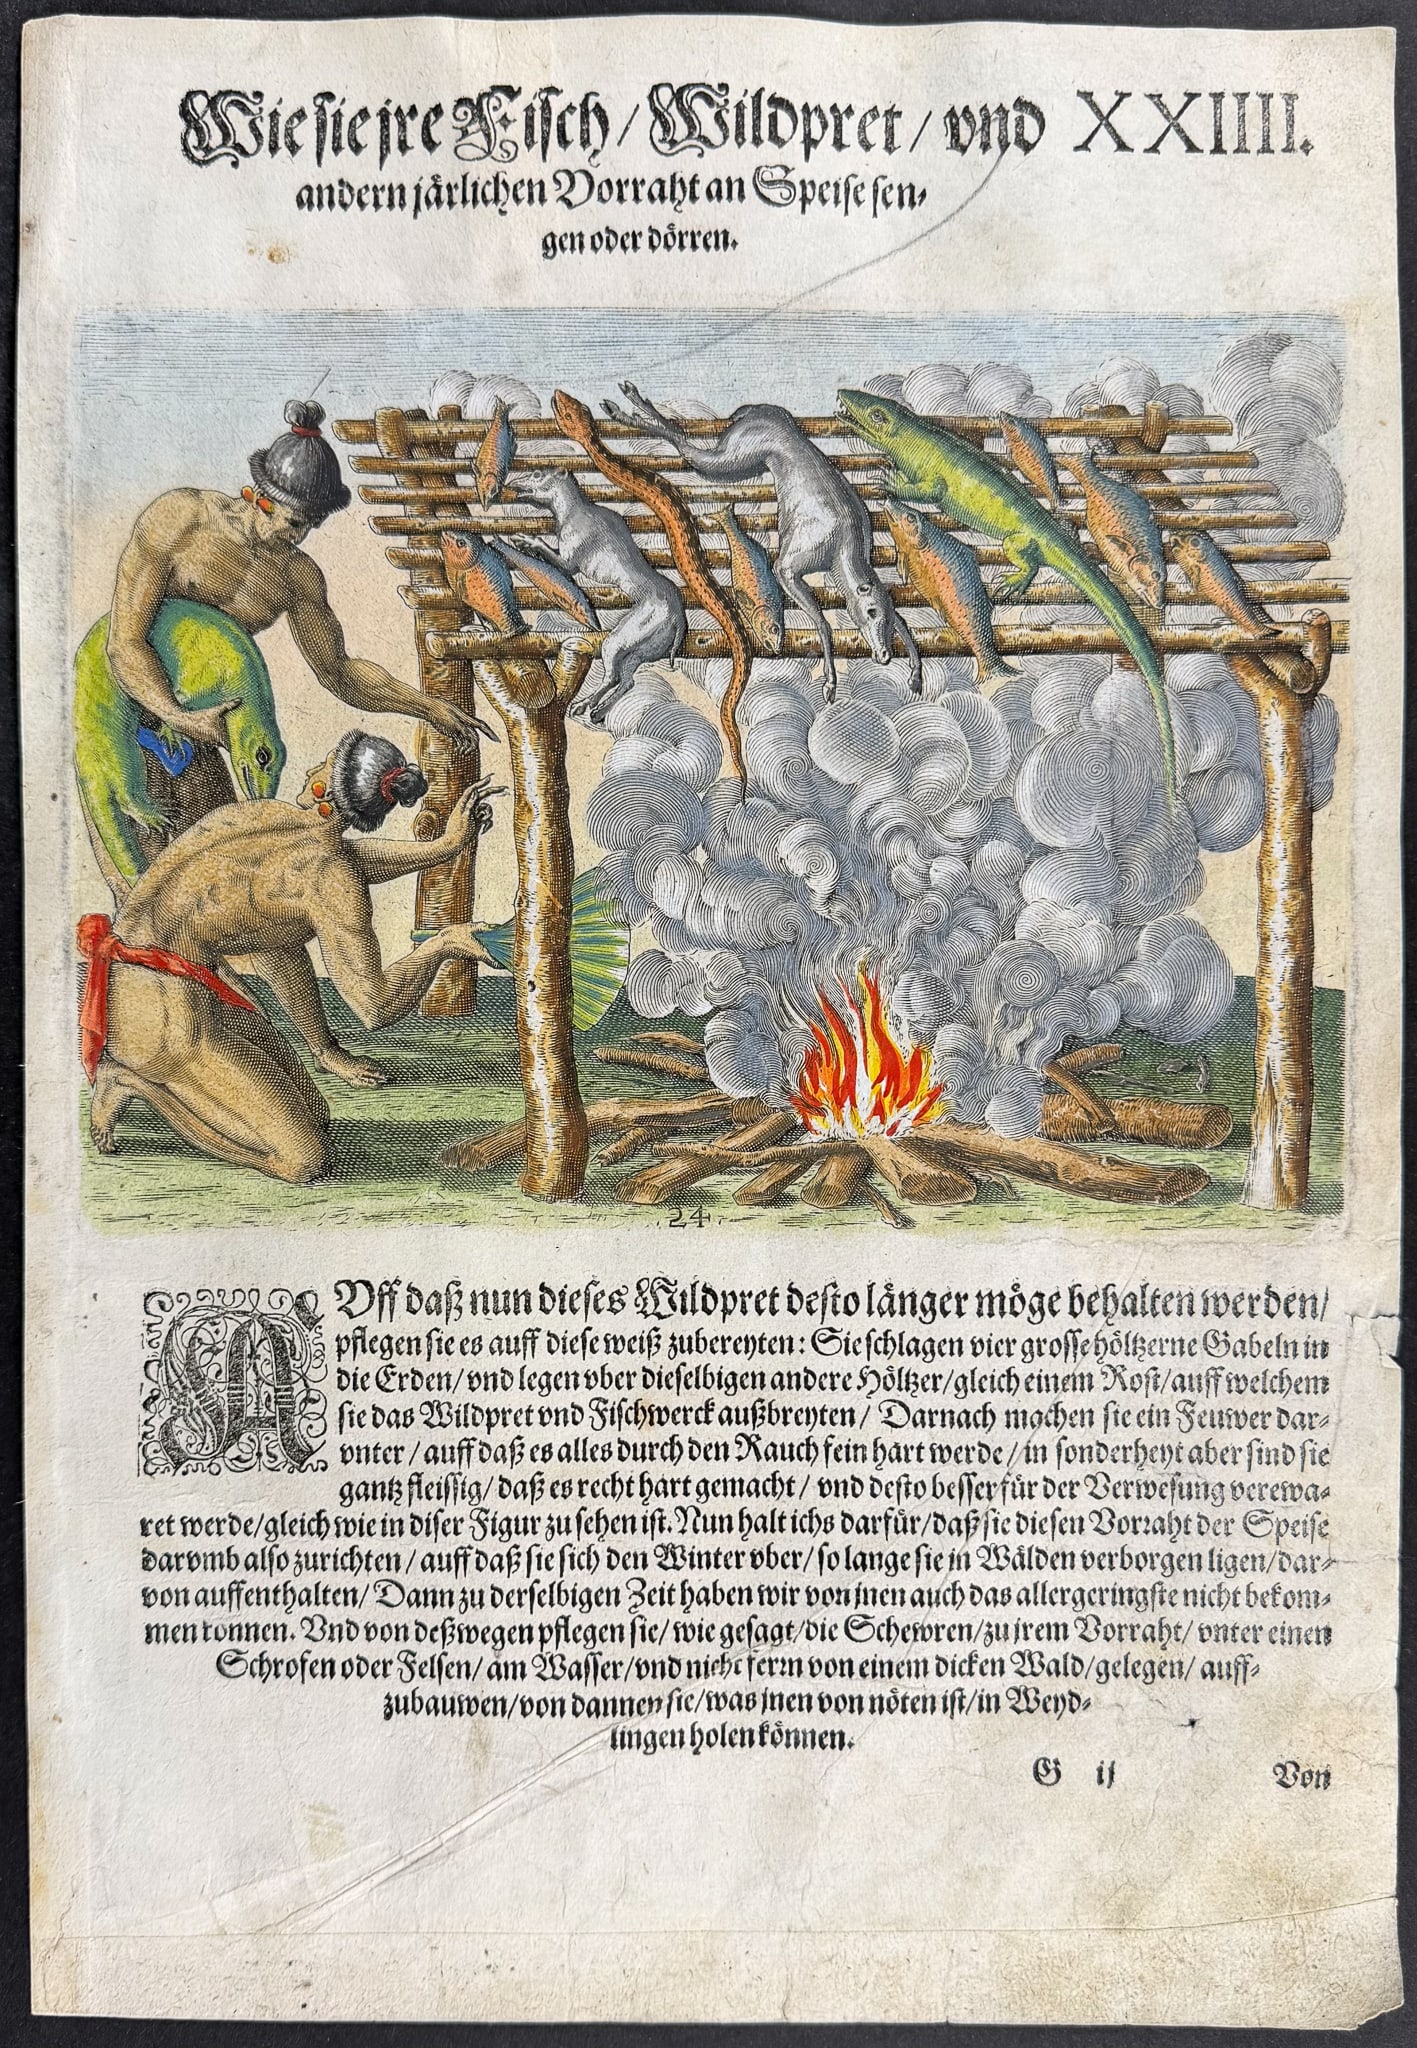 Wie sie jre Fisch / Wildpret / vnd XXIIII.
andern järlichen Vorraht an Speise sen-
gen oder dörren.
24
AVff daß nun dieses Wildpret desto länger möge behalten werden /
pflegen sie es auff diese weiß zubereyten: Sie schlagen vier grosse höltzerne Gabeln in
die Erden / vnd legen vber dieselbigen andere Höltzer / gleich einem Rost / auff welchem
sie das Wildpret vnd Fischwerck außbreyten / Darnach machen sie ein Feuwer dar-
vnter / auff daß es alles durch den Rauch fein hart werde / in sonderheyt aber sind sie
gantz fleissig / daß es recht hart gemacht / vnd desto besser für der Verwesung verewa-
ret werde / gleich wie in diser Figur zu sehen ist. Nun halt ichs darfür / daß sie diesen Vorraht der Speise
darvmb also zurichten / auff daß sie sich den Winter vber / so lange sie in Wälden verborgen ligen / dar-
von auffenthalten / Dann zu derselbigen Zeit haben wir von jnen auch das allergeringste nicht bekom-
men können. Vnd von deßwegen pflegen sie / wie gesagt / die Schewren / zu jrem Vorraht / vnter einen
Schrofen oder Felsen / am Wasser / vnd nicht ferrn von einem dicken Wald / gelegen / auff-
zubauwen / von dannen sie / was jnen von nöten ist / in Weyd-
lingen holen können.
G ij Von